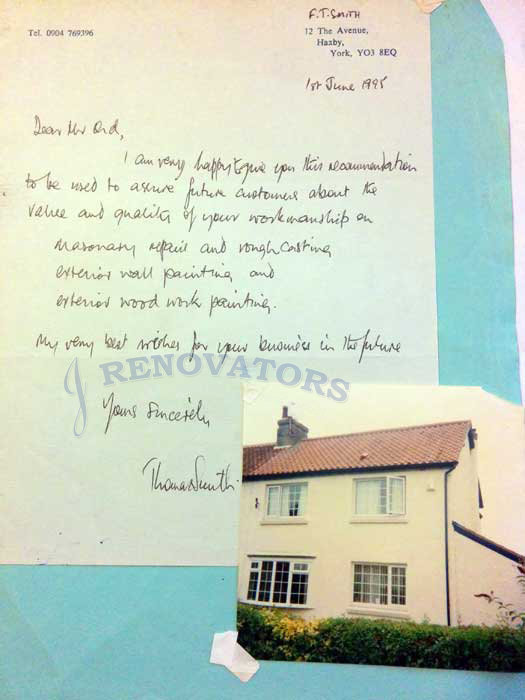 F.T. SMITH
Tel. 0904 769396
12 The Avenue,
Haxby,
York, YO3 8EQ
1st June 1995
Dear Mr Ord,
I am very happy to give you this recommendation
to be used to assure future customers about the
value and quality of your workmanship on
masonary repair and rough casting
exterior wall painting and
exterior wood work painting.
My very best wishes for your business in the future
J RENOVATORS
Yours sincerely
Thomas Smith